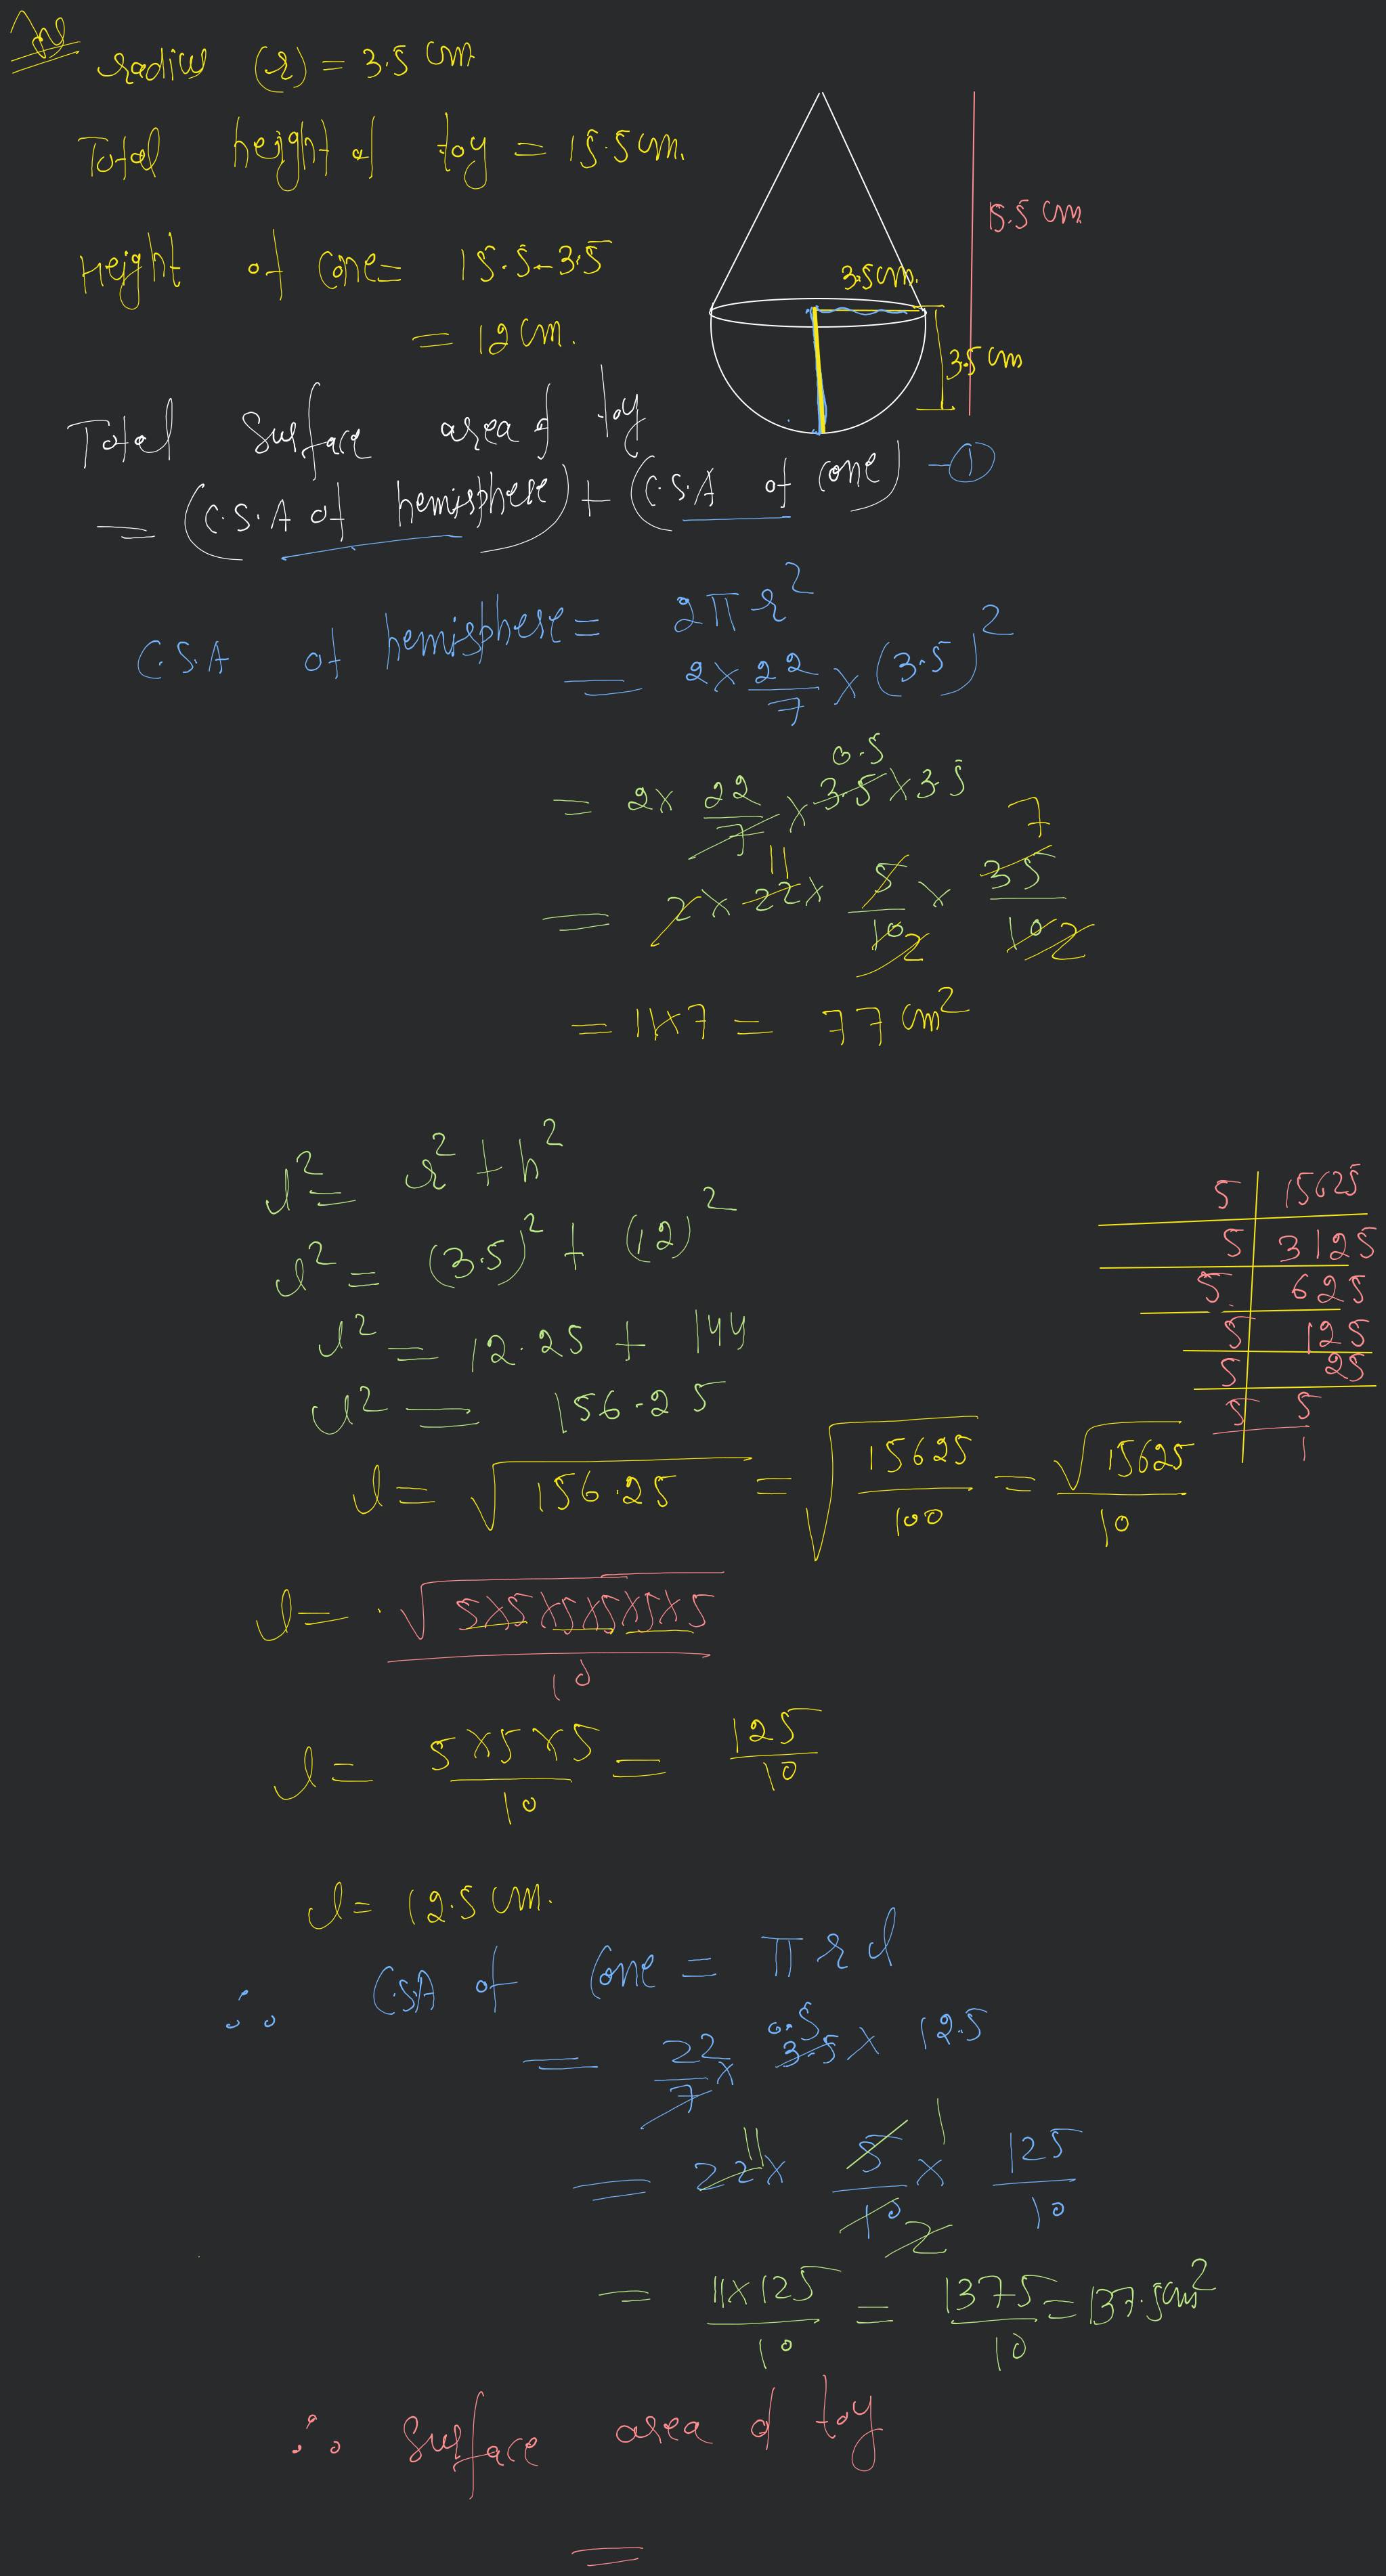 Ans
radius (r) = 3.5 cm
Total height of toy = 15.5 cm.
Height of cone = 15.5 - 3.5
= 12 cm.
15.5 cm
3.5 cm.
3.5 cm
Total Surface area of toy
= (C.S.A of hemisphere) + (C.S.A of cone) - ①
C.S.A of hemisphere = 2πr²
= 2 × 22/7 × (3.5)²
= 2 × 22/7 × 3.5 × 3.5
0.5
= 2 × 22 × 5/10 × 35/10
11 7
2 2
= 11×7 = 77 cm²
l² = r² + h²
l² = (3.5)² + (12)²
l² = 12.25 + 144
l² = 156.25
l = √156.25 = √(15625/100) = √15625/10
5 | 15625
5 | 3125
5 | 625
5 | 125
5 | 25
5 | 5
1
l = √(5×5×5×5×5×5)/10
l = 5×5×5/10 = 125/10
l = 12.5 cm.
∴ CSA of Cone = πrl
= 22/7 × 3.5 × 12.5
0.5
= 22 × 5/10 × 125/10
11 1
2
= 11×125/10 = 1375/10 = 137.5 cm²
∴ Surface area of toy
=